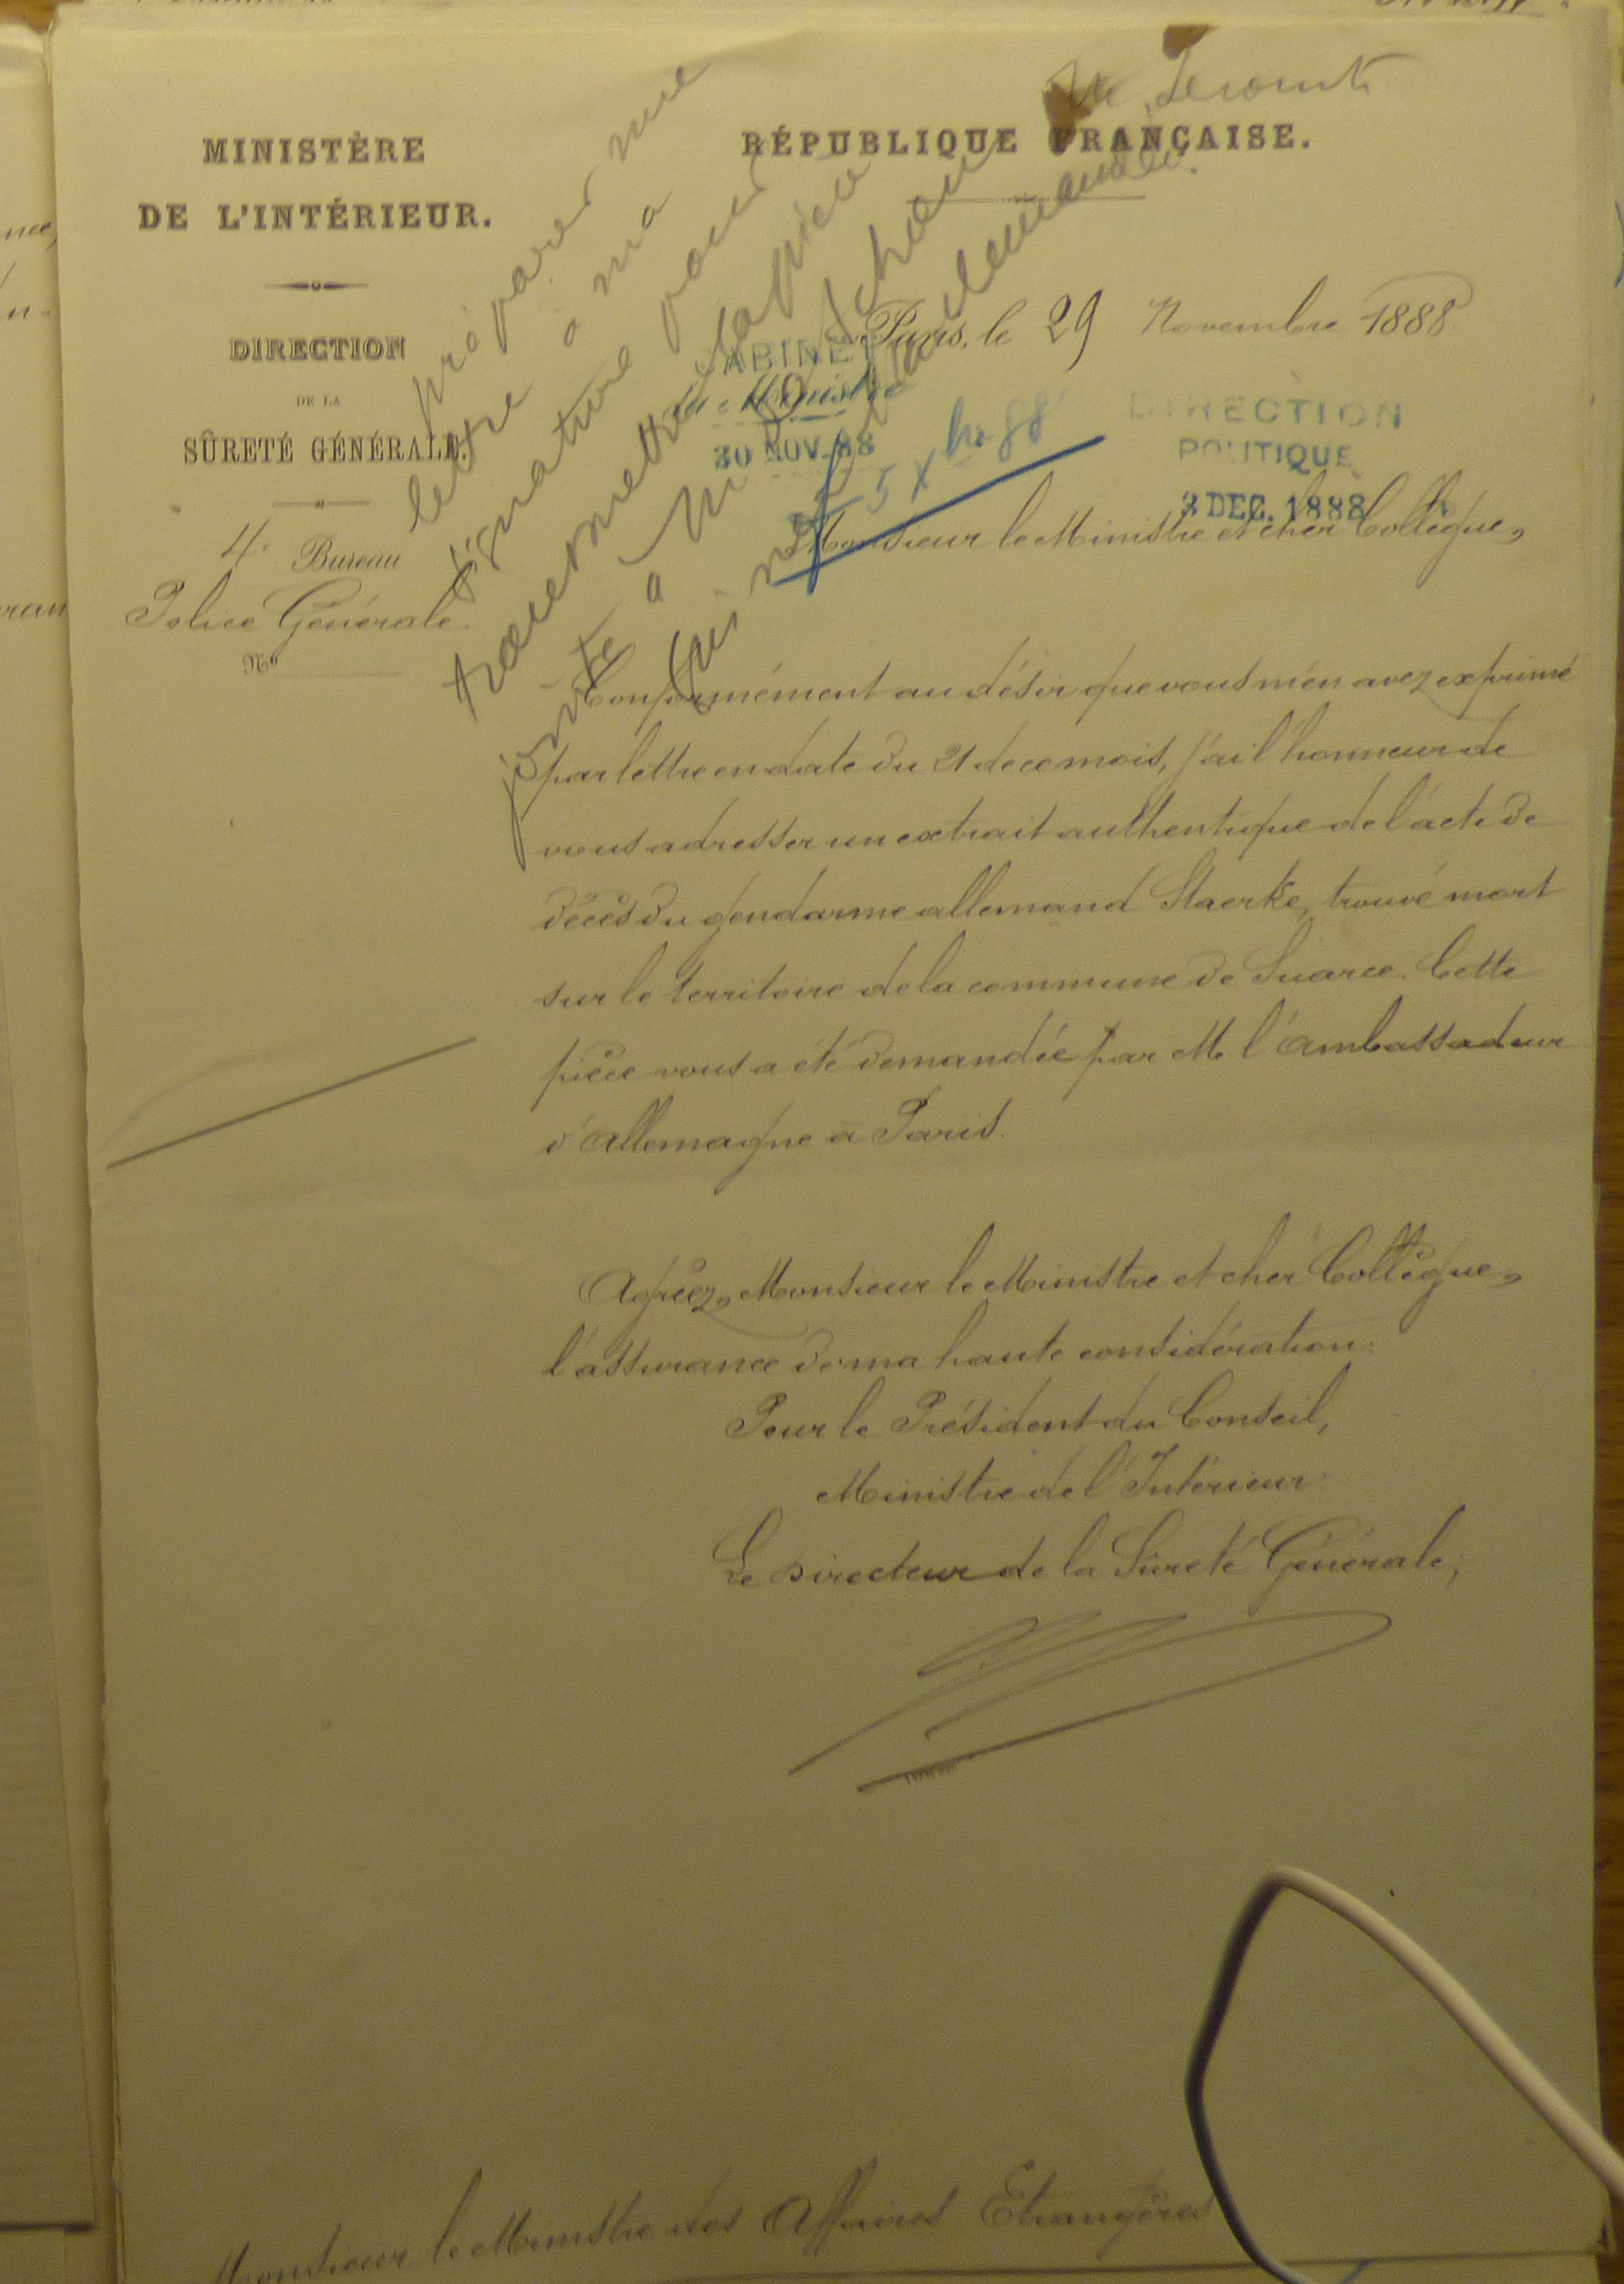 MINISTÈRE
DE L'INTÉRIEUR.
DIRECTION
DE LA
SÛRETÉ GÉNÉRALE.
4e Bureau
Police Générale.
No
RÉPUBLIQUE FRANÇAISE.
Paris, le 29 Novembre 1888
CABINET
du Ministre
30 NOV. 88
DIRECTION
POLITIQUE
3 DEC. 1888
préparer une
lettre à ma
signature pour
transmettre la pièce
jointe à M. de Schoen
qui me l'a demandée.
Monsieur le Ministre et cher Collègue,
Conformément au désir que vous m'en avez exprimé
par lettre en date du 21 de ce mois, j'ai l'honneur de
vous adresser un extrait authentique de l'acte de
décès du gendarme allemand Staerke, trouvé mort
sur le territoire de la commune de Suarce. Cette
pièce vous a été demandée par M. l'ambassadeur
d'Allemagne à Paris.
Agréez, Monsieur le Ministre et cher Collègue,
l'assurance de ma haute considération.
Pour le Président du Conseil,
Ministre de l'Intérieur.
Le Directeur de la Sûreté Générale,
Monsieur le Ministre des Affaires Etrangères